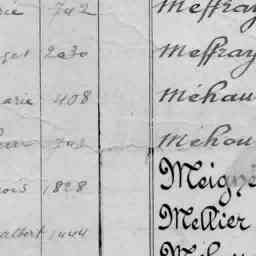 742 Meffray
2030 Meffray
arie 408 Méhau
Méhou
ois 1828 Meigné
albert 1444 Mellier